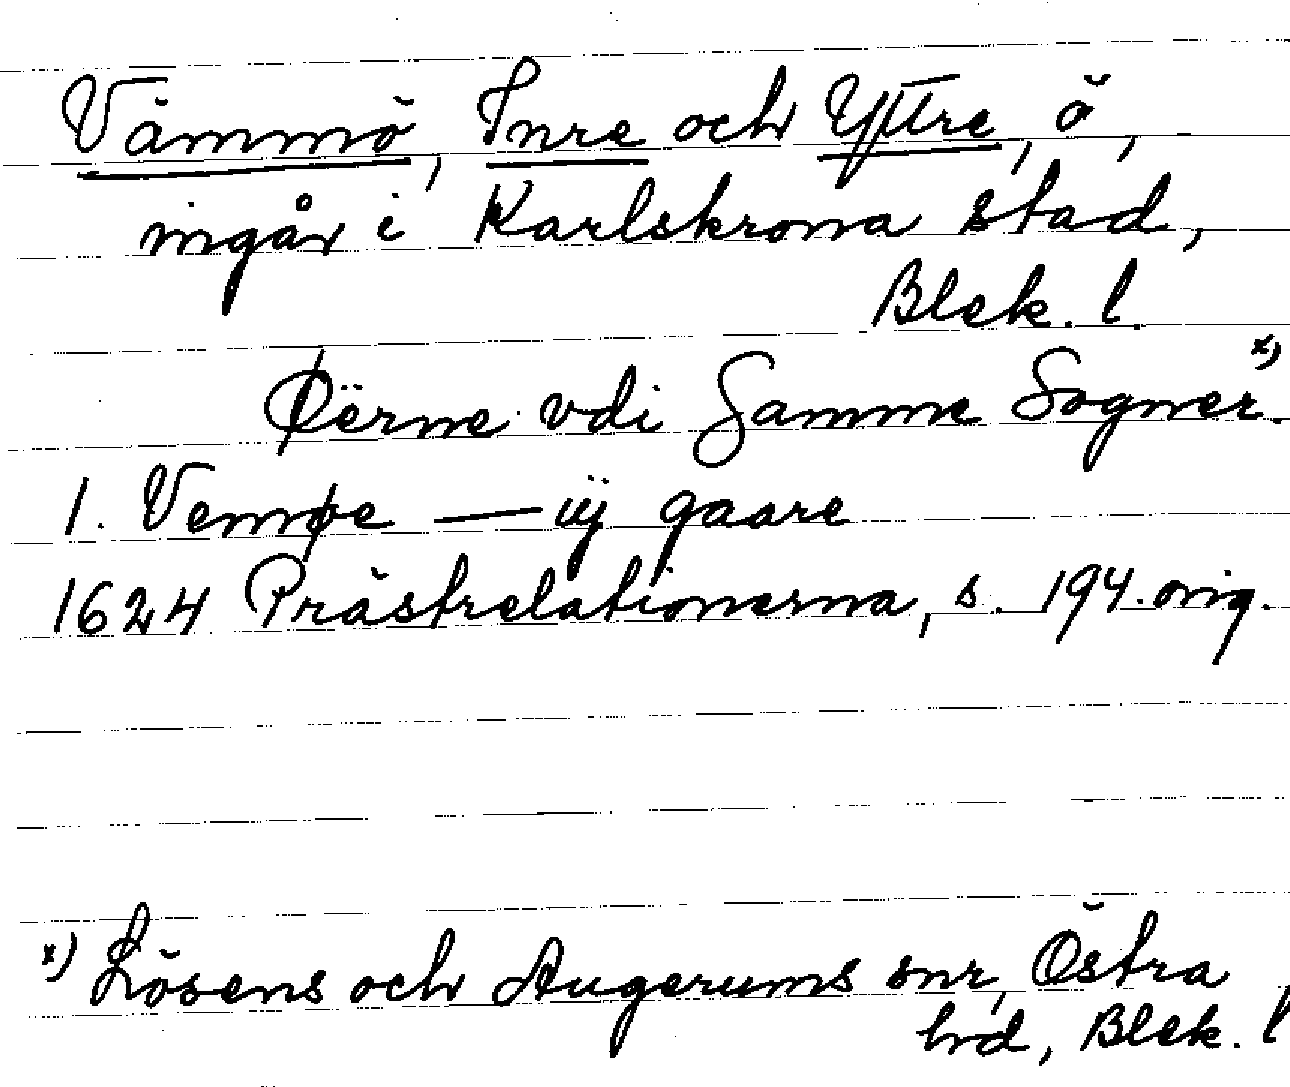 Vämmö, Inre och Yttre, ö,
ingår i Karlskrona stad,
Blek. l.
Øërne vdi Samme Sogner. x)
1. Vemøe — iij gaare
1624 Prästrelationerna, s. 194. orig.
x) Lösens och Augerums snr, Östra
hrd, Blek. l